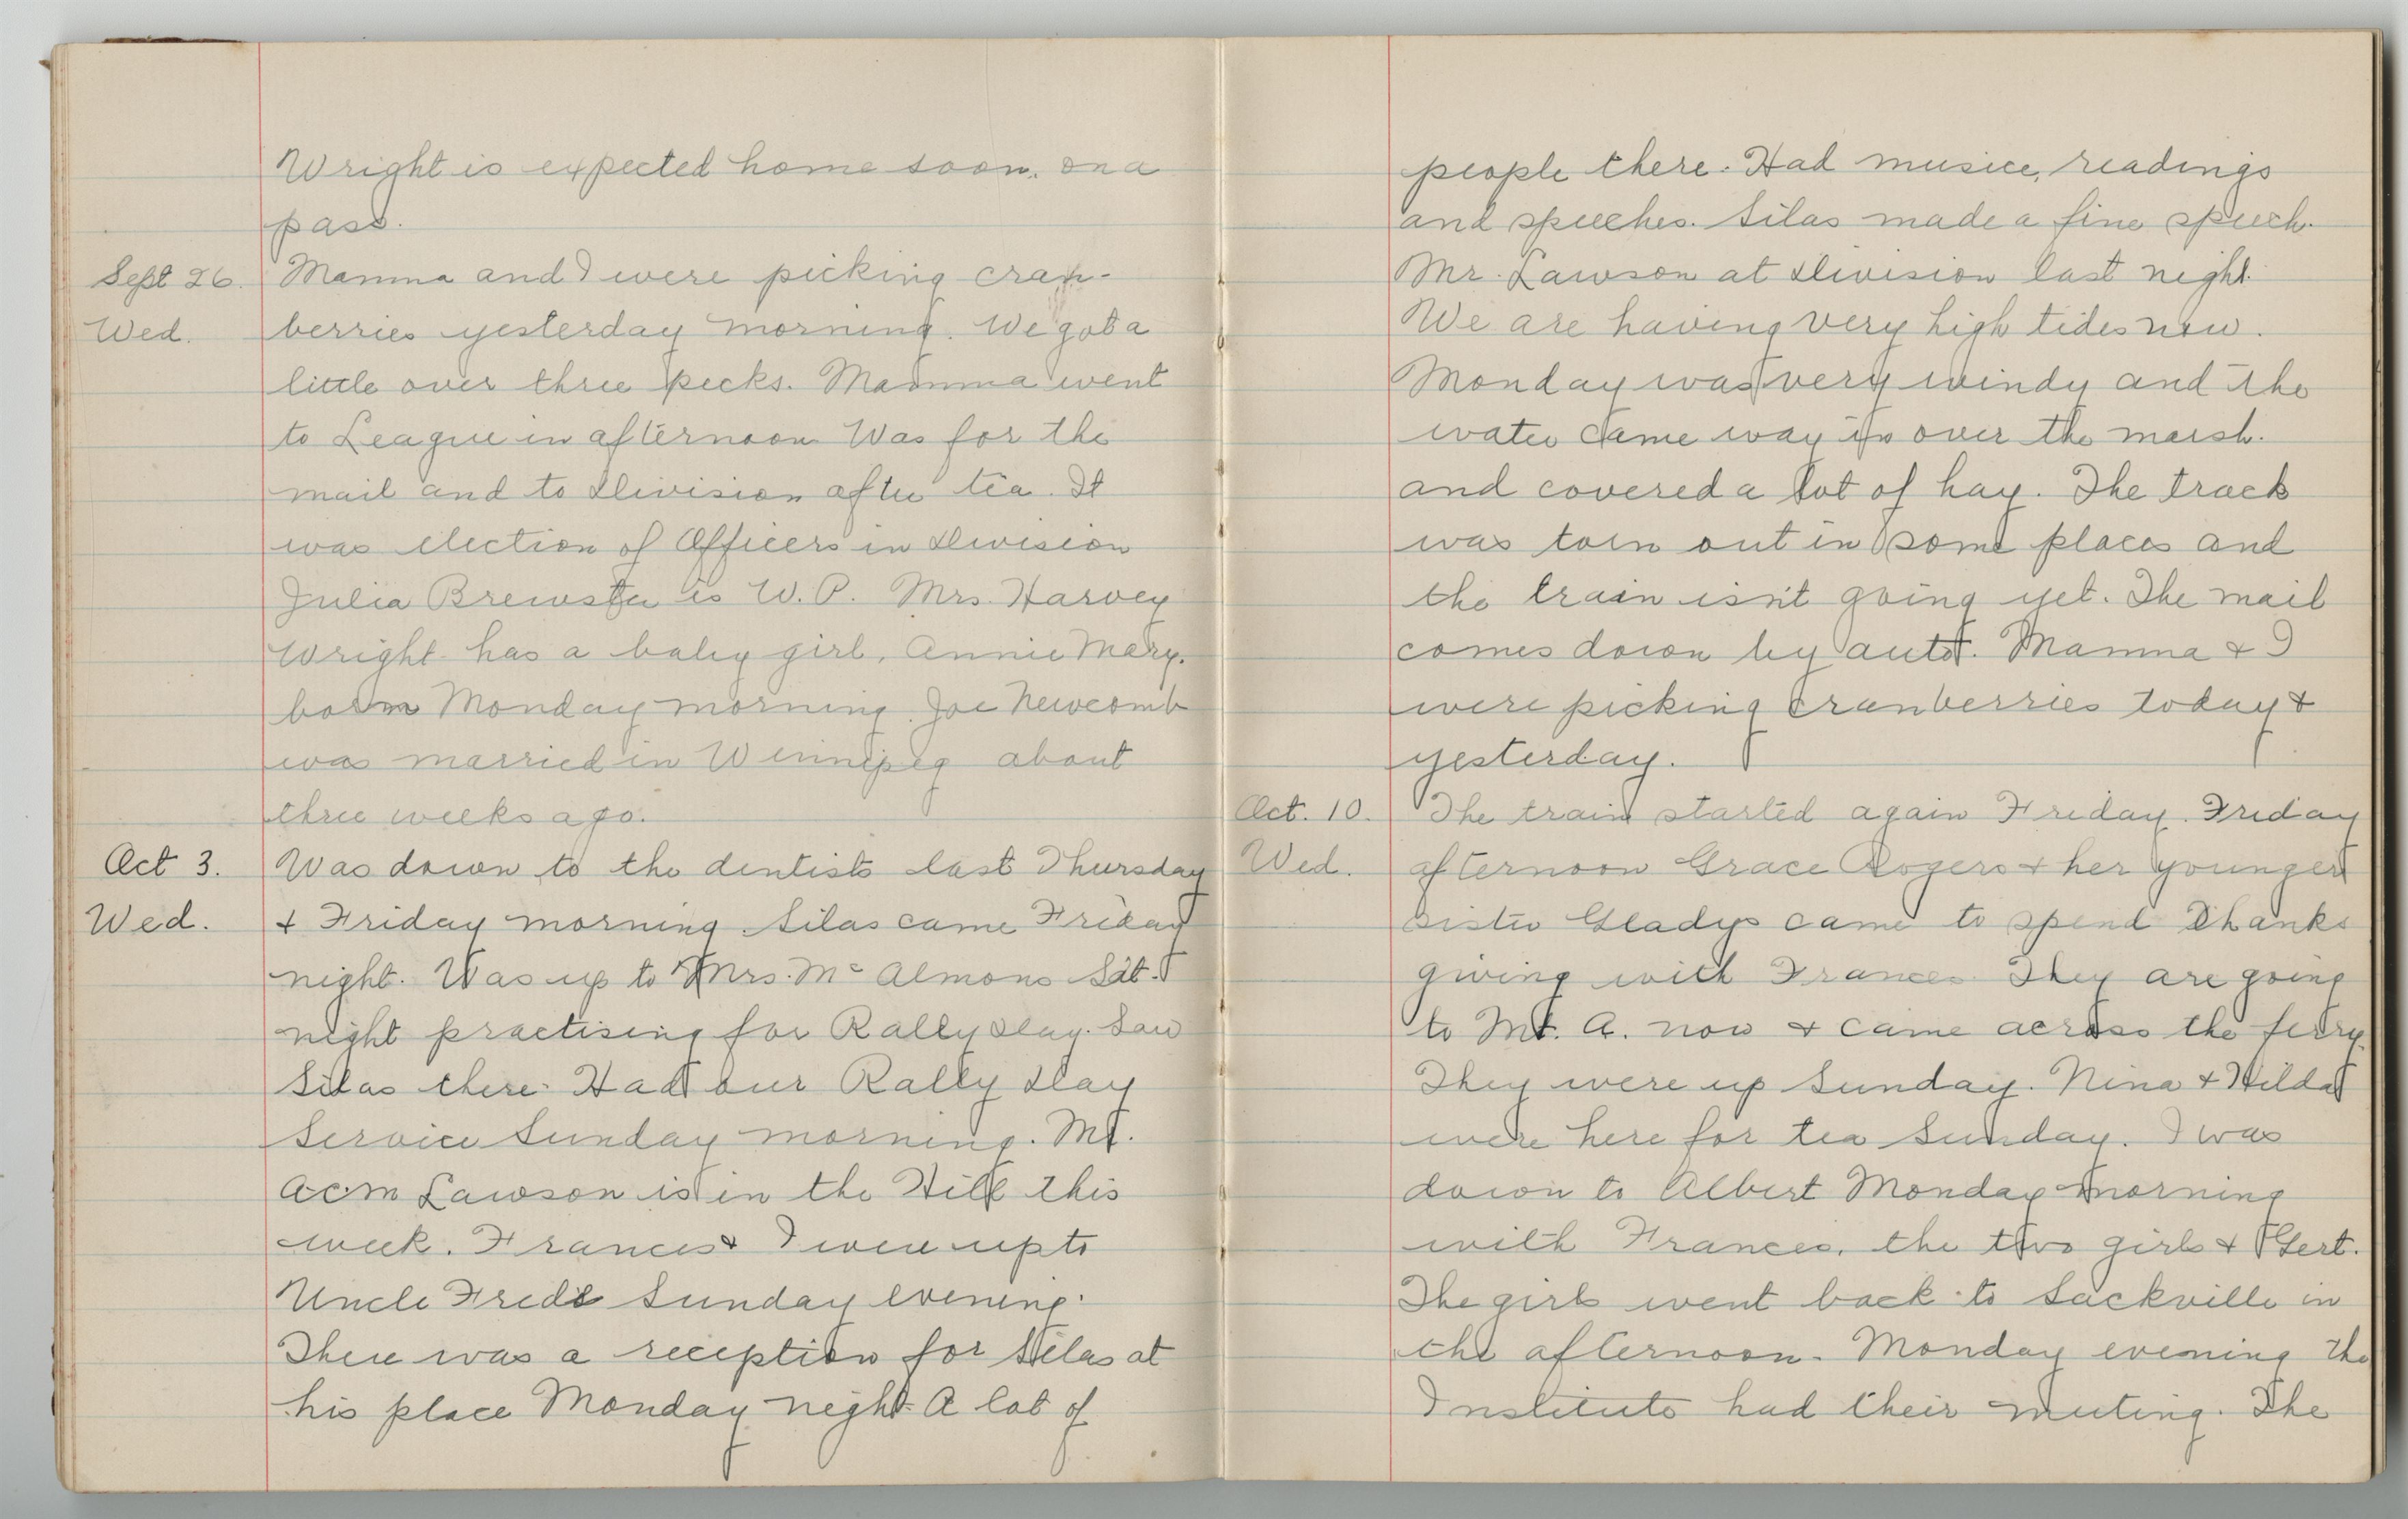 Wright is expected home soon. on a
pass.
Sept 26. Mamma and I were picking cran-
Wed. berries yesterday morning. We got a
little over three pecks. Mamma went
to League in afternoon Was for the
mail and to Division after tea. It
was election of Officers in Division
Julia Brewster is W. P. Mrs. Harvey
Wright has a baby girl, Annie Mary.
born Monday morning. Joe Newcomb
was married in Winnipeg about
three weeks ago.
Oct 3. Was down to the dentists last Thursday
Wed. & Friday morning. Silas came Friday
night. Was up to Mrs. McAlmons Sat.
night practising for Rally Day. Saw
Silas there. Had our Rally Day
Service Sunday morning. Mr.
A.C.M Lawson is in the Hill this
week. Frances & I were up to
Uncle Freds Sunday evening.
There was a reception for Silas at
his place Monday night. A lot of
people there. Had musice, readings
and speeches. Silas made a fine speech.
Mr. Lawson at Division last night.
We are having very high tides now.
Monday was very windy and the
water came way up over the marsh.
and covered a lot of hay. The track
was torn out in some places and
the train isn't going yet. The mail
comes down by auto. Mamma & I
were picking cranberries today &
yesterday.
Oct. 10. The train started again Friday. Friday
Wed. afternoon Grace Rogers & her younger
sister Gladys came to spend Thanks
giving with Frances. They are going
to Mt. A. now & came across the ferry.
They were up Sunday. Nina & Hilda
were here for tea Sunday. I was
down to Albert Monday morning
with Frances, the two girls & Gert.
The girls went back to Sackville in
the afternoon. Monday evening the
Institute had their meeting. The